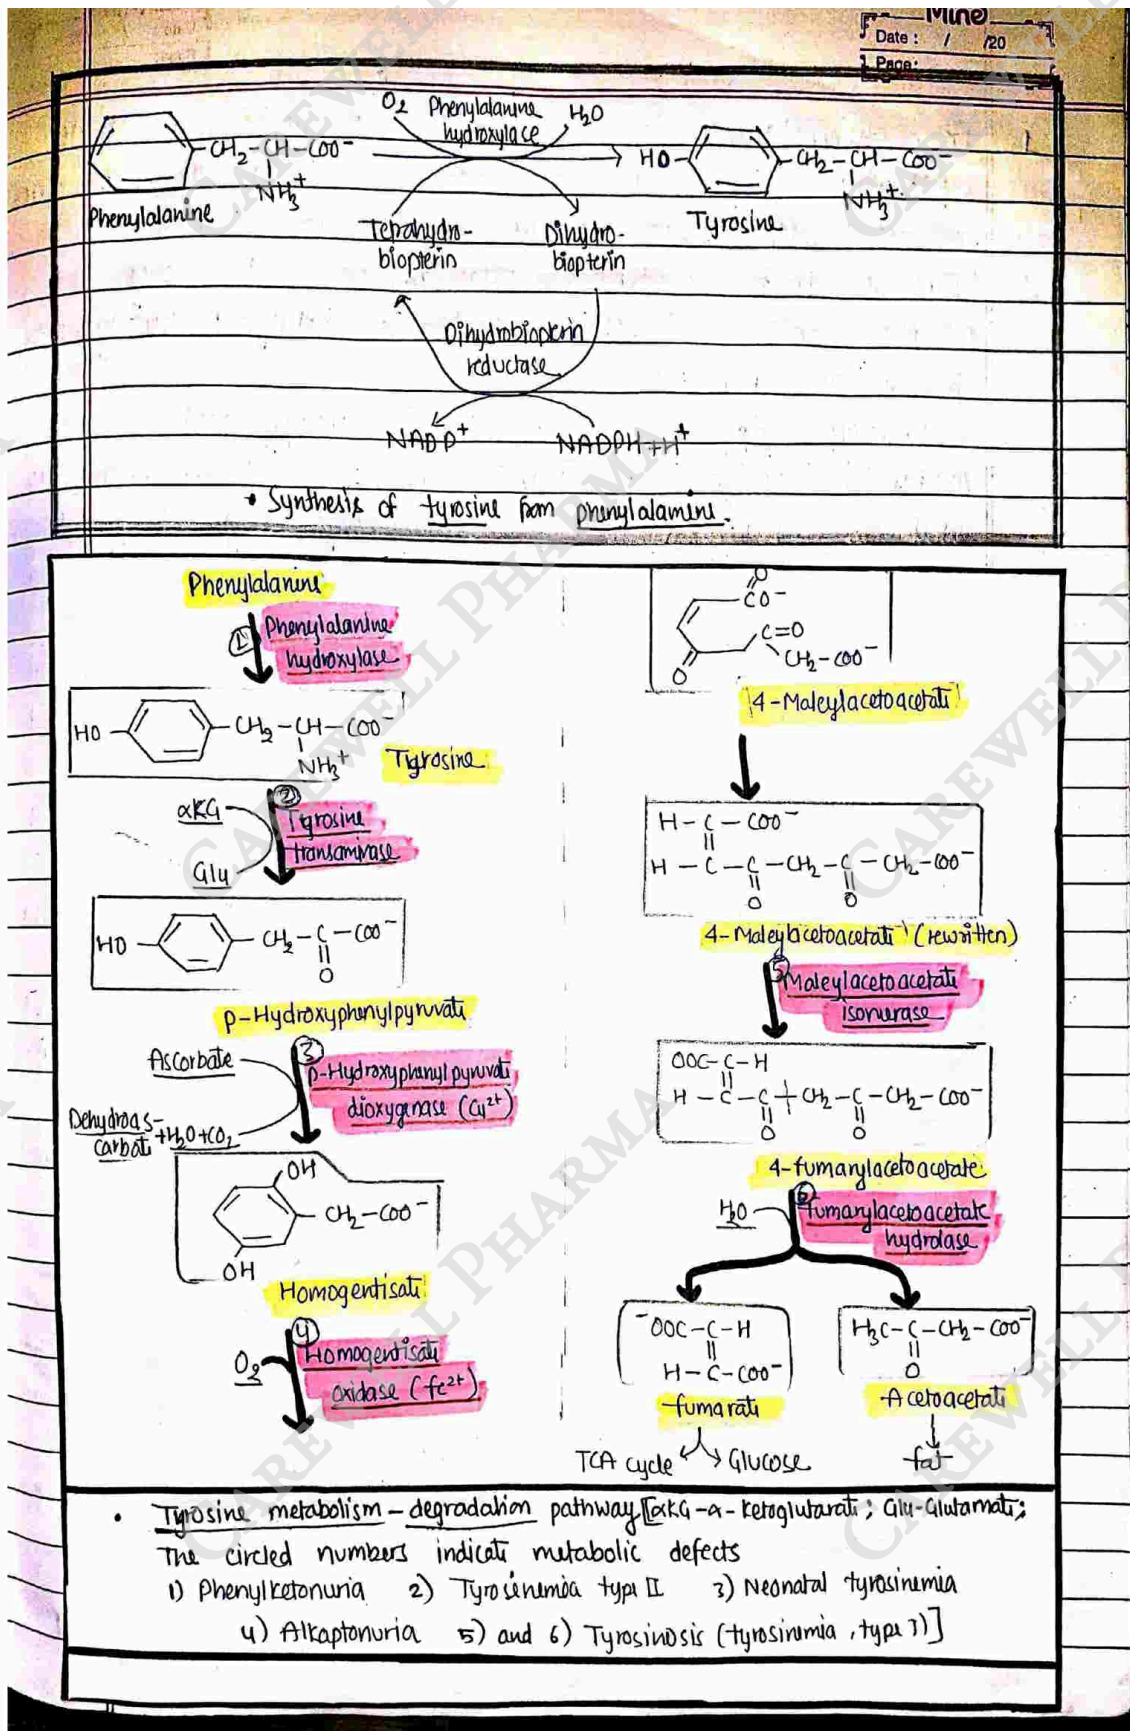 Mine
Date : / /20
Page:
O2 Phenylalanine hydroxylace H2O
-CH2-CH-COO-
NH3+
Phenylalanine
HO- -CH2-CH-COO-
NH3+
Tyrosine
Tetrahydro-
biopterin
Dihydro-
biopterin
Dihydrobiopterin
reductase
NADP+ NADPH+H+
• Synthesis of tyrosine from phenylalamine.
Phenylalanine
1 Phenylalanine
hydroxylase
HO- -CH2-CH-COO-
NH3+
Tyrosine
αKG
Glu
2 Tyrosine
transaminase
HO- -CH2-C-COO-
O
p-Hydroxyphenylpyruvate
Ascorbate
Dehydroas-
carbate +H2O+CO2
3 p-Hydroxyphenyl pyruvate
dioxygenase (Cu2+)
OH
-CH2-COO-
OH
Homogentisate
O2
4 Homogentisate
oxidase (fe2+)
O
CO-
C=O
CH2-COO-
O
4-Maleylacetoacetate
H-C-COO-
H-C-C-CH2-C-CH2-COO-
O O
4-Maleylacetoacetate (rewritten)
5 Maleylacetoacetate
isomerase
OOC-C-H
H-C-C-CH2-C-CH2-COO-
O O
4-fumarylacetoacetate
H2O
6 fumarylacetoacetate
hydrolase
-OOC-C-H
H-C-COO-
fumarate
H3C-C-CH2-COO-
O
Acetoacetate
TCA cycle Glucose
fat
• Tyrosine metabolism - degradation pathway [αKG-α-Ketoglutarate; Glu-Glutamate;
The circled numbers indicate metabolic defects
1) Phenylketonuria 2) Tyrosinemia type II 3) Neonatal tyrosinemia
4) Alkaptonuria 5) and 6) Tyrosinosis (tyrosinemia, type I)]
CAREWELL PHARMA